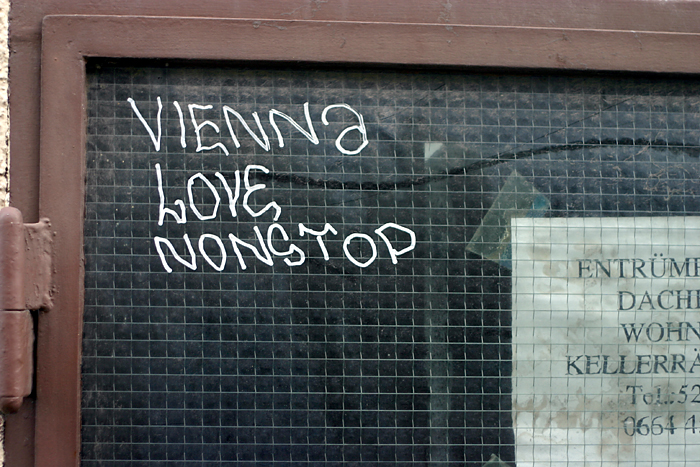 VIENNa
LOVE
NONSTOP
ENTRÜMP
DACHB
WOHN
KELLERRÄ
Tel.:52
0664 4